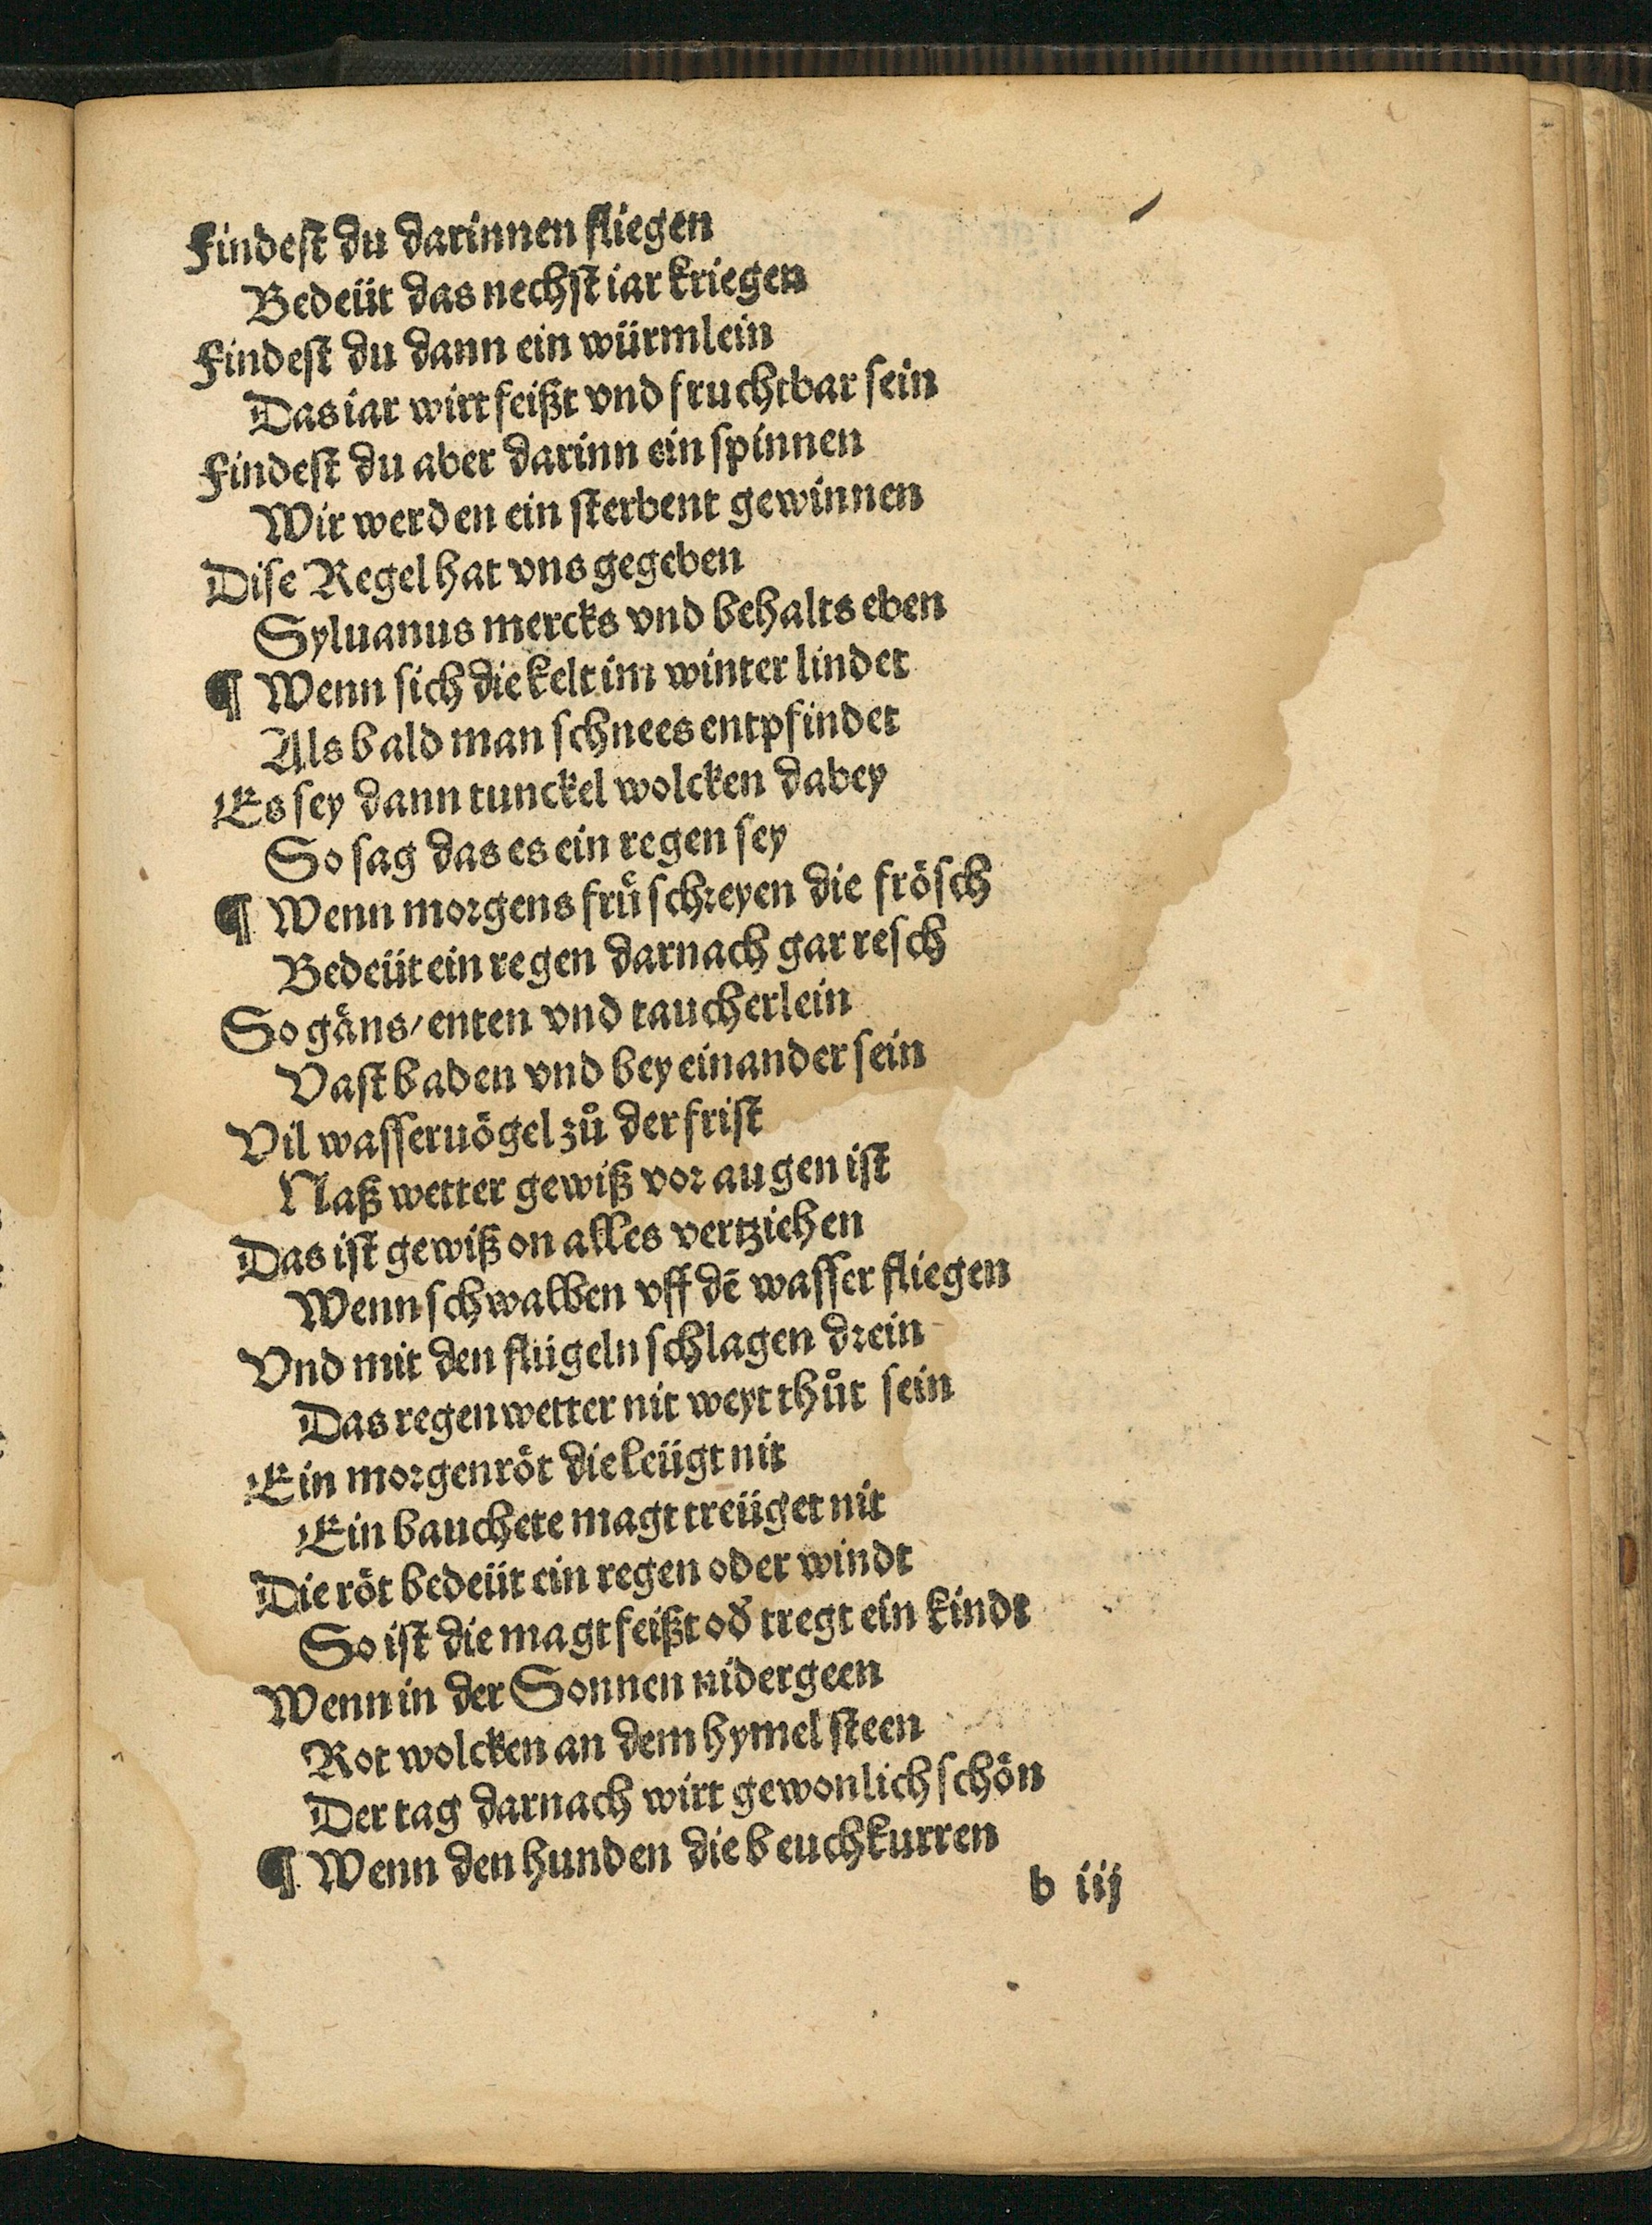 Findeſt du darinnen fliegen
Bedeüt das nechſt iar kriegen
Findeſt du dann ein würmlein
Das iar wirt feißt vnd fruchtbar ſein
Findeſt du aber darinn ein ſpinnen
Wir werden ein ſterbent gewinnen
Diſe Regel hat vns gegeben
Syluanus mercks vnd behalts eben
¶ Wenn ſich die kelt im winter lindet
Als bald man ſchnees entpfindet
Es ſey dann tunckel wolcken dabey
So ſag das es ein regen ſey
¶ Wenn morgens fruͤ ſchreyen die fröſch
Bedeüt ein regen darnach gar reſch
So gäns/ enten vnd taucherlein
Vaſt baden vnd bey einander ſein
Vil waſſeruögel zuͦ der friſt
Naß wetter gewiß vor augen iſt
Das iſt gewiß on alles vertziehen
Wenn ſchwalben vff dē waſſer fliegen
Vnd mit den flügeln ſchlagen drein
Das regenwetter nit weyt thuͦt ſein
Ein morgenröt die leügt nit
Ein bauchete magt treüget nit
Die röt bedeüt ein regen oder windt
So iſt die magt feißt od̕ tregt ein kindt
Wenn in der Sonnen nidergeen
Rot wolcken an dem hymel ſteen
Der tag darnach wirt gewonlich ſchön
¶ Wenn den hunden die beuch kurren
b iij